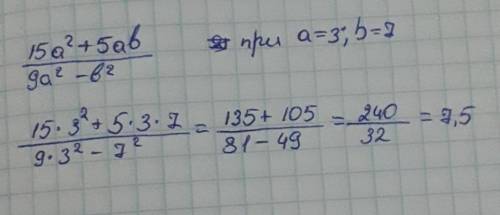 (15a² + 5ab)/(9a² − b²) при a=3; b=7
(15·3² + 5·3·7)/(9·3² − 7²) = (135 + 105)/(81 − 49) = 240/32 = 7,5